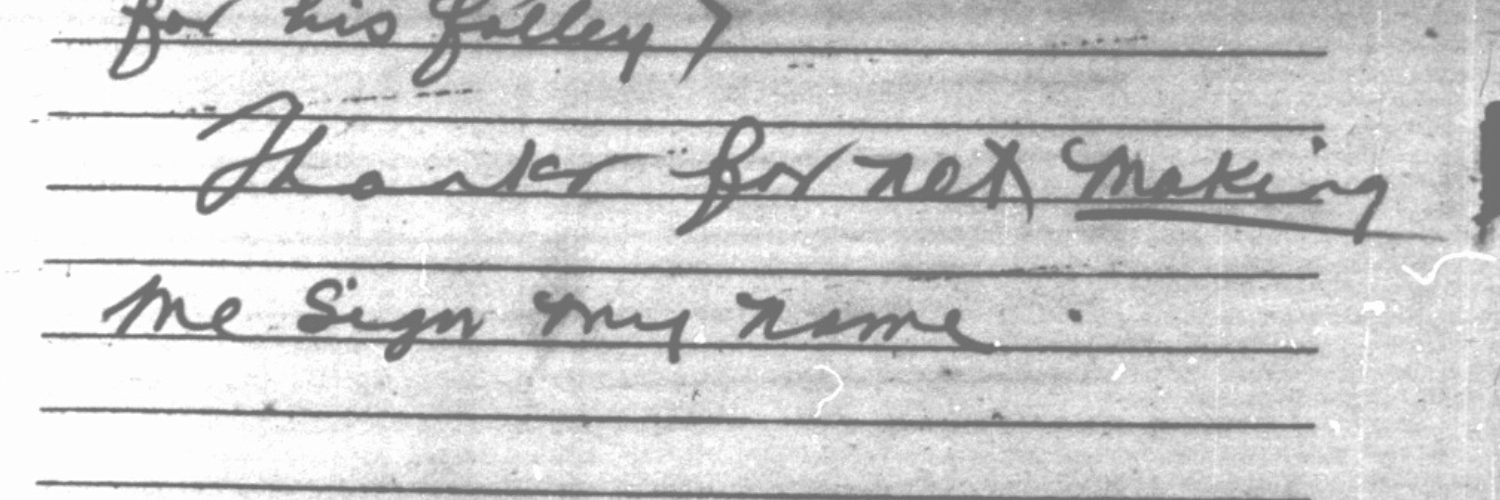 for his folley)
Thanks for not making
me Sign my name.